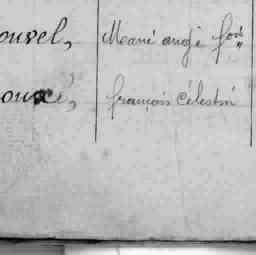 ouvel, Marie ange fois
oucé, françois célestin